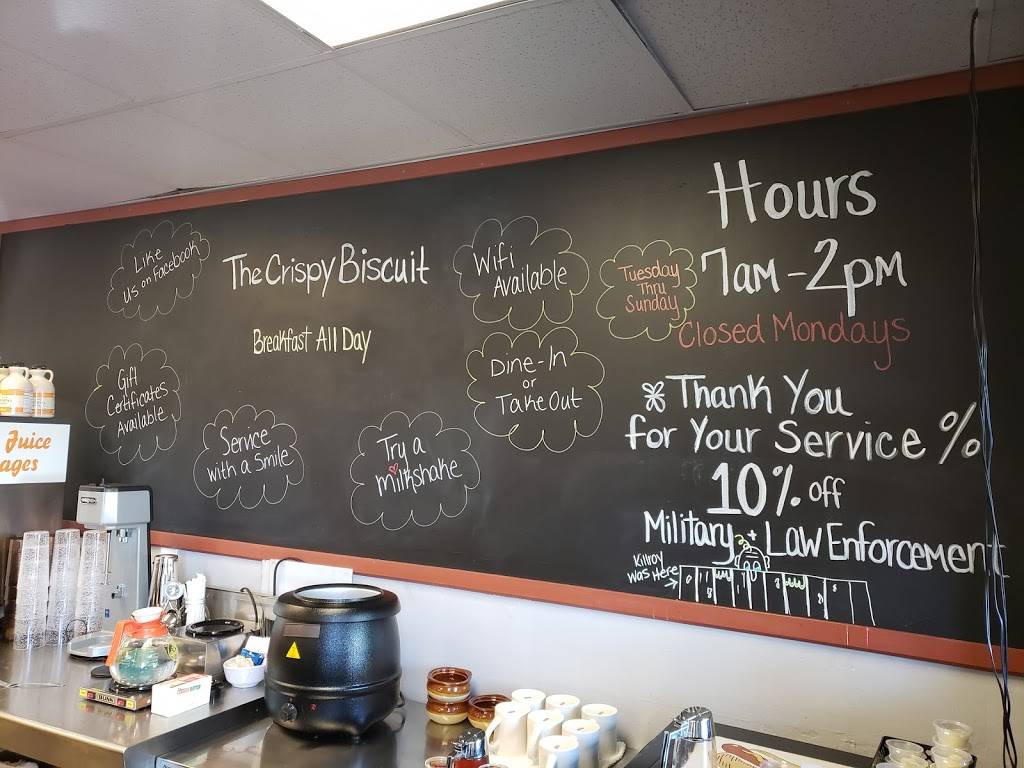 Like
us on Facebook
The Crispy Biscuit
Breakfast All Day
Gift
Certificates
Available
Service
with a Smile
Try a
milkshake
Wifi
Available
Dine-In
or
Take Out
Tuesday
Thru
Sunday
Hours
7am-2pm
Closed Mondays
Thank You
for Your Service %
10% off
Military + Law Enforcement
Killroy
was Here
Juice
ages
BUNN